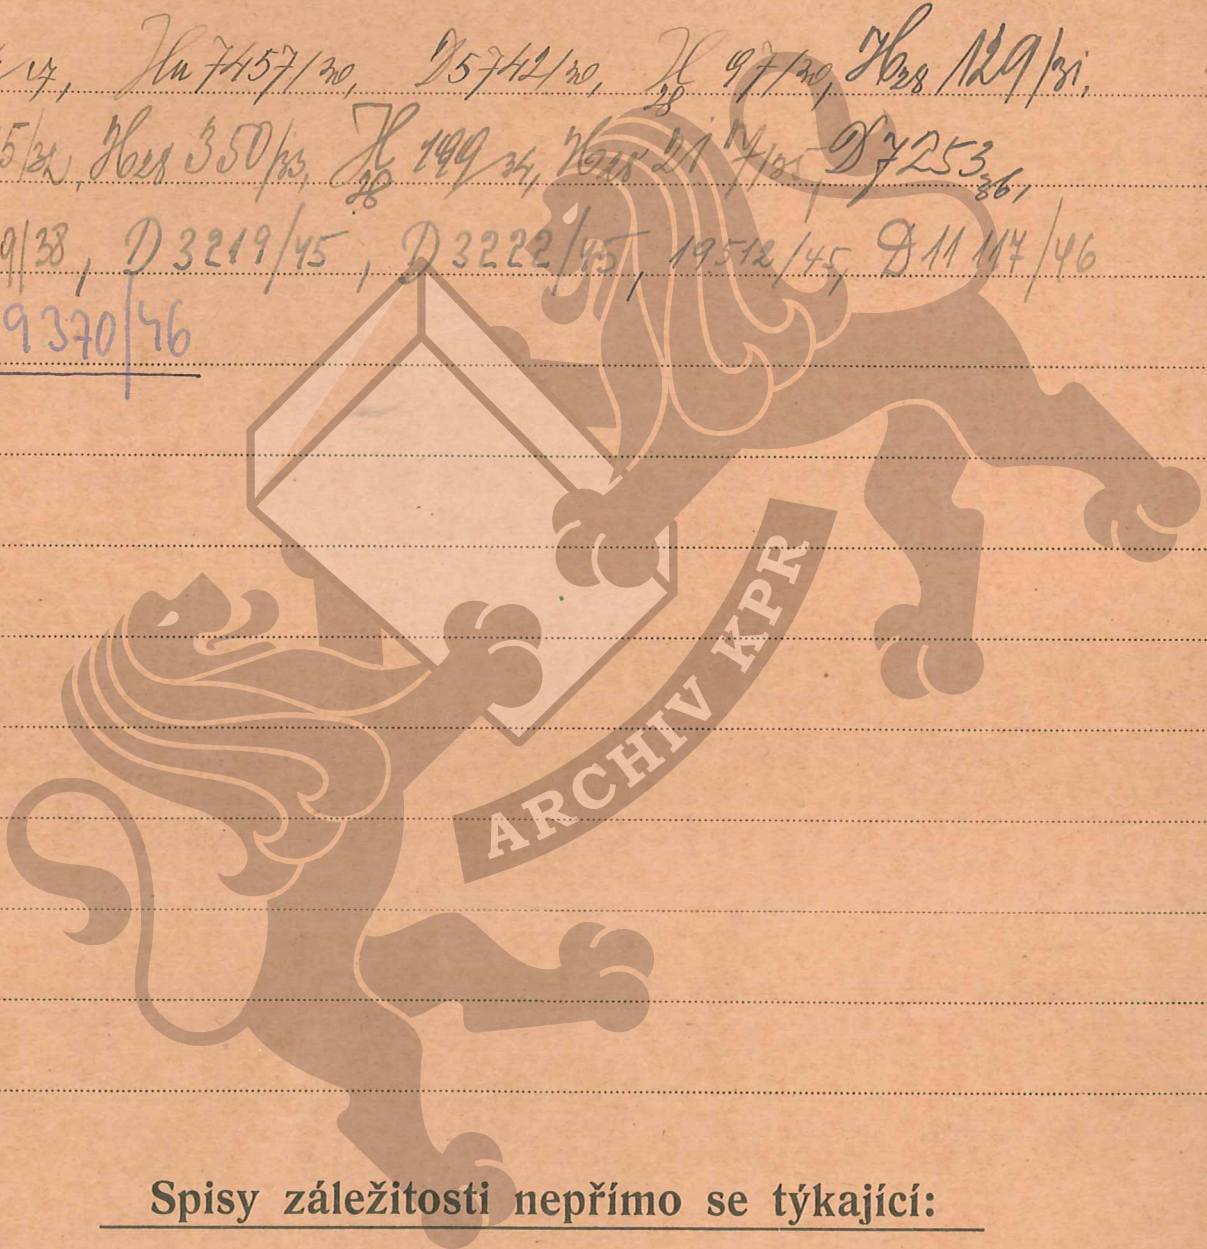 17, Hu 7457/30, D5742/30, H28 97/30, H28 129/31,
5/32, H28 350/33, H28 199/34, H28 217/35, D7253/36,
9/38, D 3219/45, D 3222/45, 19512/45, D 11 117/46
9370/46
ARCHIV KPR
Spisy záležitosti nepřímo se týkající: